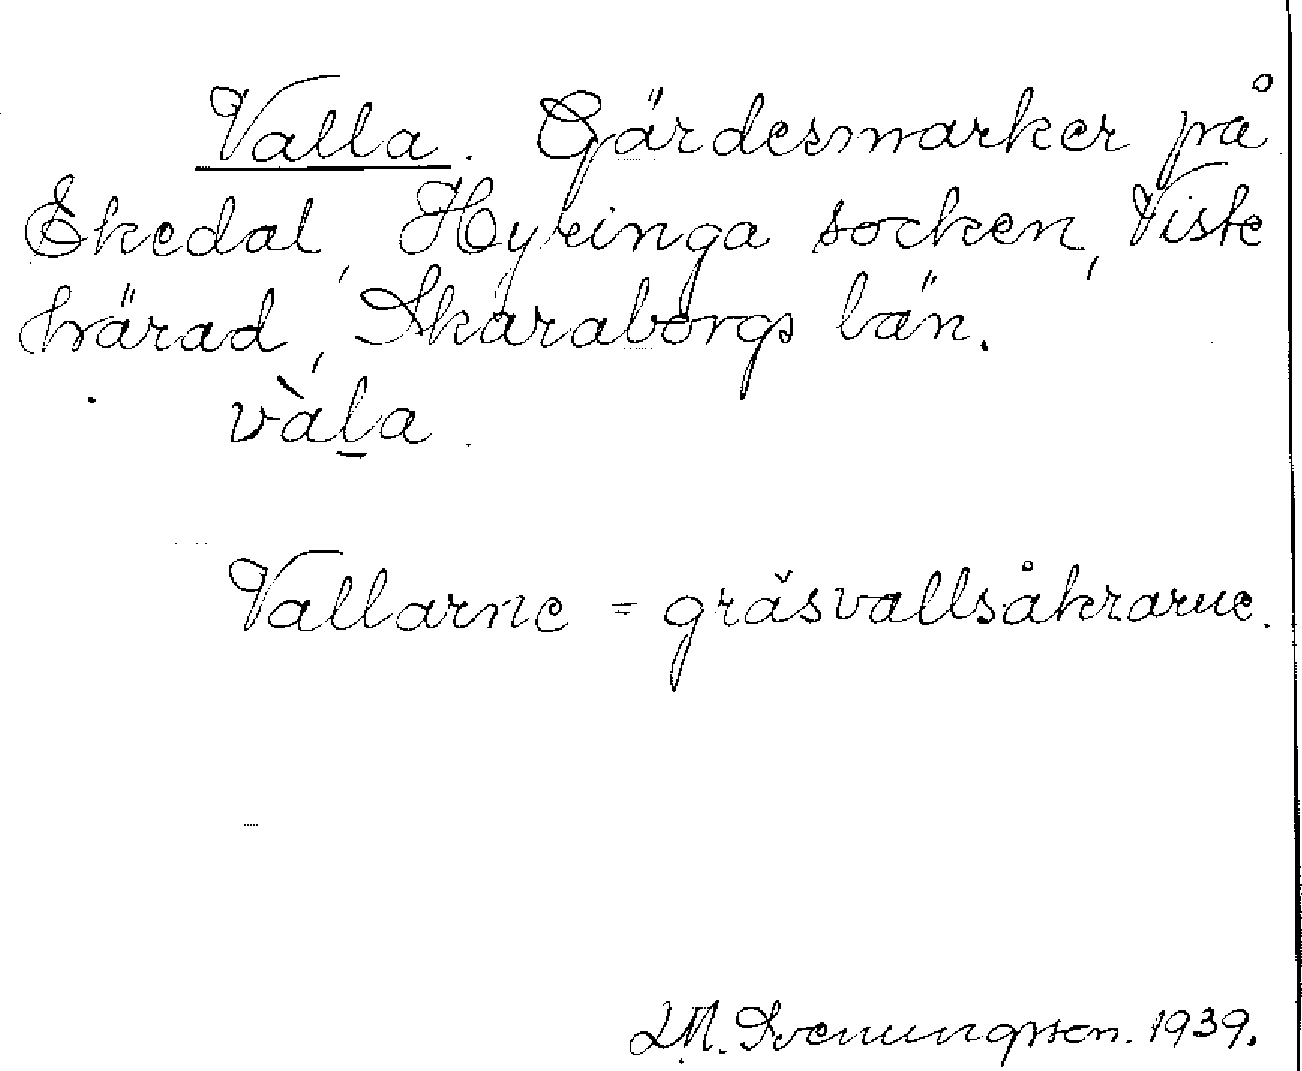 Valla. Gärdesmarker på
Ekedal, Hyringa socken, Viste
härad, Skaraborgs län.
vàl̲a.
Vallarne = gräsvallsåkrarne.
L.M. Svenungsson. 1939.